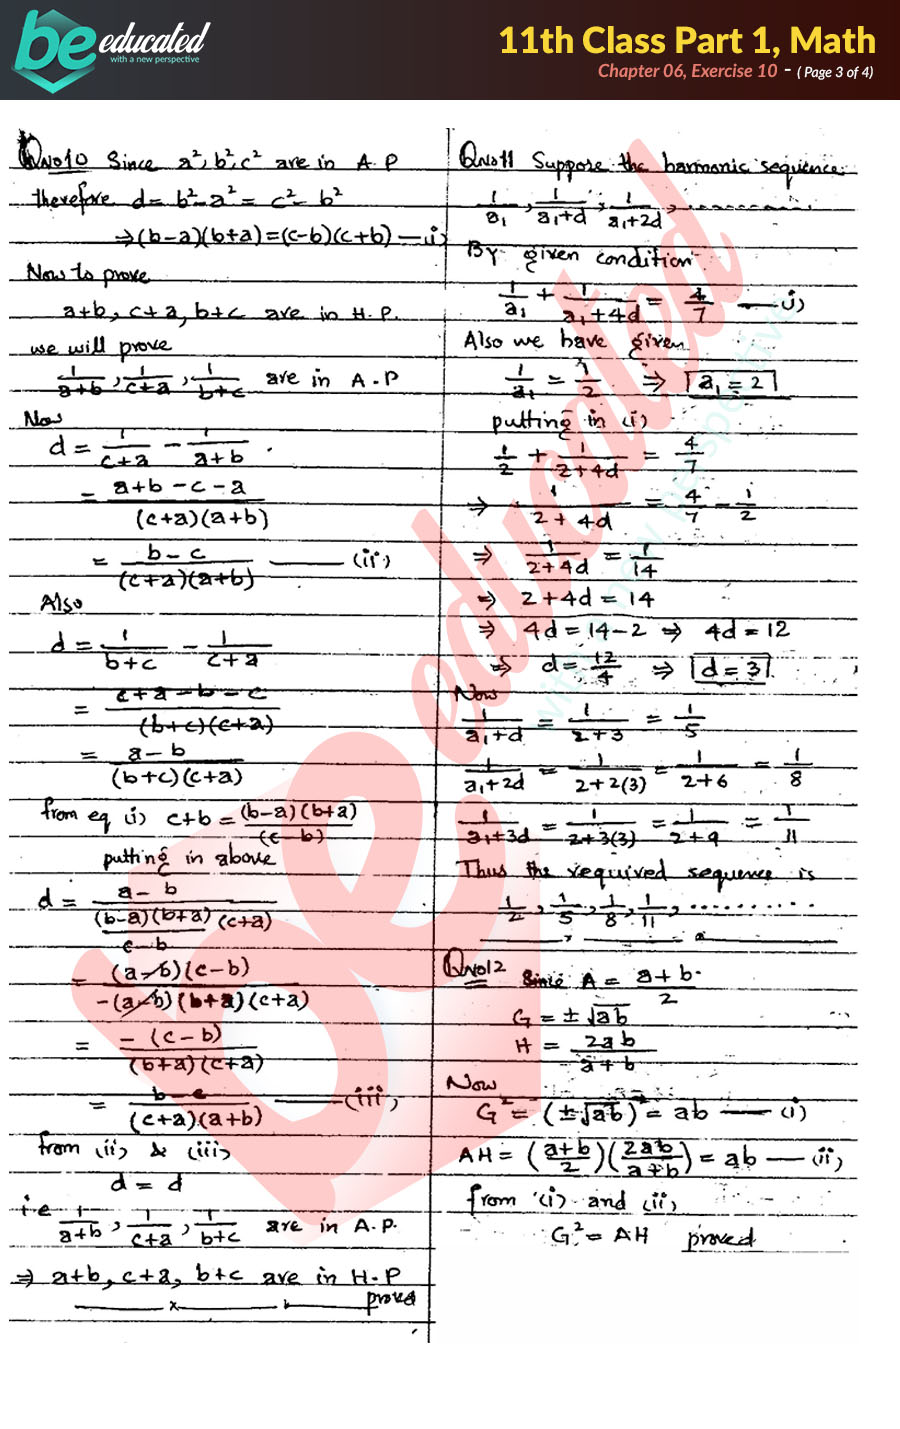 be educated
with a new perspective
11th Class Part 1, Math
Chapter 06, Exercise 10 - ( Page 3 of 4)
QNo10 Since a², b², c² are in A.P
therefore d = b² - a² = c² - b²
⇒ (b-a)(b+a) = (c-b)(c+b) — (i)
Now to prove
a+b, c+a, b+c are in H.P.
we will prove
1/(a+b), 1/(c+a), 1/(b+c) are in A.P
Now
d = 1/(c+a) - 1/(a+b)
= (a+b-c-a)/((c+a)(a+b))
= (b-c)/((c+a)(a+b)) — (ii)
Also
d = 1/(b+c) - 1/(c+a)
= (c+a-b-c)/((b+c)(c+a))
= (a-b)/((b+c)(c+a))
from eq (i) c+b = (b-a)(b+a)/(c-b)
putting in above
d = (a-b)/(((b-a)(b+a)/(c-b)) (c+a))
= (a-b)(c-b)/(-(a-b)(b+a)(c+a))
= -(c-b)/((b+a)(c+a))
= (b-c)/((c+a)(a+b)) — (iii)
from (ii) & (iii)
d = d
i.e 1/(a+b), 1/(c+a), 1/(b+c) are in A.P.
⇒ a+b, c+a, b+c are in H.P
proved
QNo11 Suppose the harmonic sequence
1/a₁, 1/(a₁+d), 1/(a₁+2d), ..........
By given condition
1/a₁ + 1/(a₁+4d) = 4/7 — (i)
Also we have given
1/a₁ = 1/2 ⇒ a₁ = 2
putting in (i)
1/2 + 1/(2+4d) = 4/7
⇒ 1/(2+4d) = 4/7 - 1/2
⇒ 1/(2+4d) = 1/14
⇒ 2+4d = 14
⇒ 4d = 14-2 ⇒ 4d = 12
⇒ d = 12/4 ⇒ d = 3
Now
1/(a₁+d) = 1/(2+3) = 1/5
1/(a₁+2d) = 1/(2+2(3)) = 1/(2+6) = 1/8
1/(a₁+3d) = 1/(2+3(3)) = 1/(2+9) = 1/11
Thus the required sequence is
1/2, 1/5, 1/8, 1/11, ..........
QNo12 Since A = (a+b)/2
G = ±√ab
H = 2ab/(a+b)
Now
G² = (±√ab)² = ab — (i)
AH = ((a+b)/2)(2ab/(a+b)) = ab — (ii)
from (i) and (ii)
G² = AH proved
be educated
with a new perspective